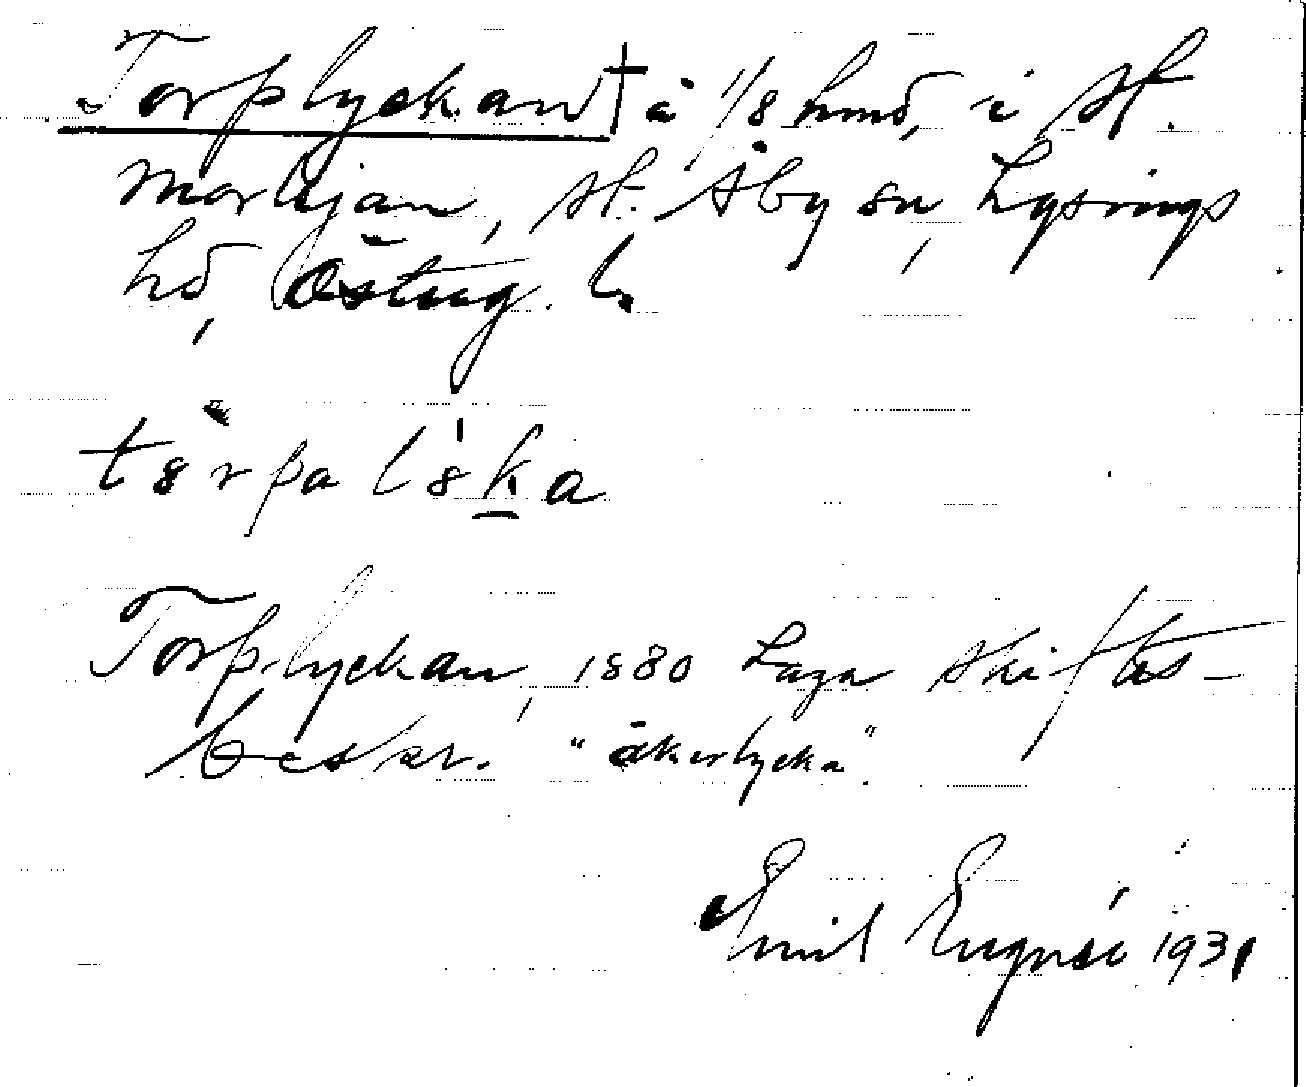 Torplyckan † å 1/8 hmd, i St.
Morhjan, St. Åby sn, Lysings
hd, Östug. l.
tȯrpa l'ȯka
Torplyckan, 1880 Laga skiftes-
beskr. "åkerlycka".
Emil Engnér 1931